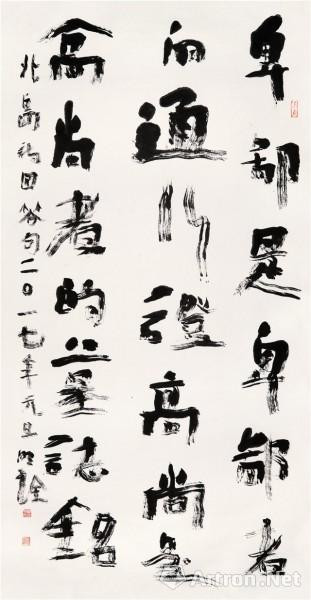 卑鄙是卑鄙者
的通行證高尚是
高尚者的墓誌銘
北島詩回答句二〇一七年元旦明詮
Artron.Net